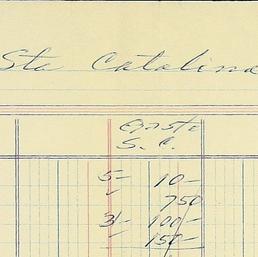 Sta Catalina
Gasto
S. C.
5- 10-
750
3/- 100-
150-